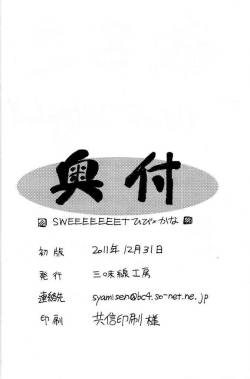 奥付
SWEEEEEEET ひびのかな
初版 2011年12月31日
発行 三味線工房
連絡先 syamisen@bc4.so-net.ne.jp
印刷 共信印刷様